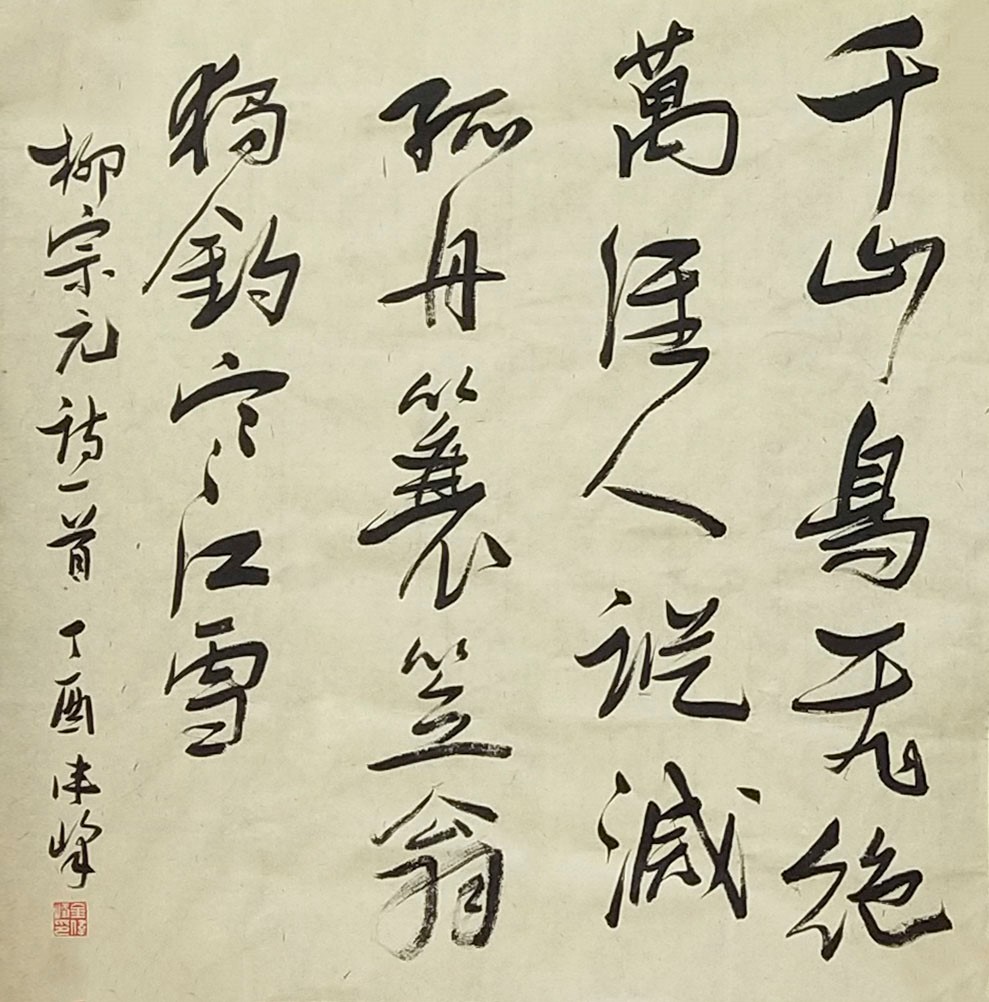 千山鳥飛絕
萬徑人蹤滅
孤舟簑笠翁
獨釣寒江雪
柳宗元詩一首 丁酉 峰